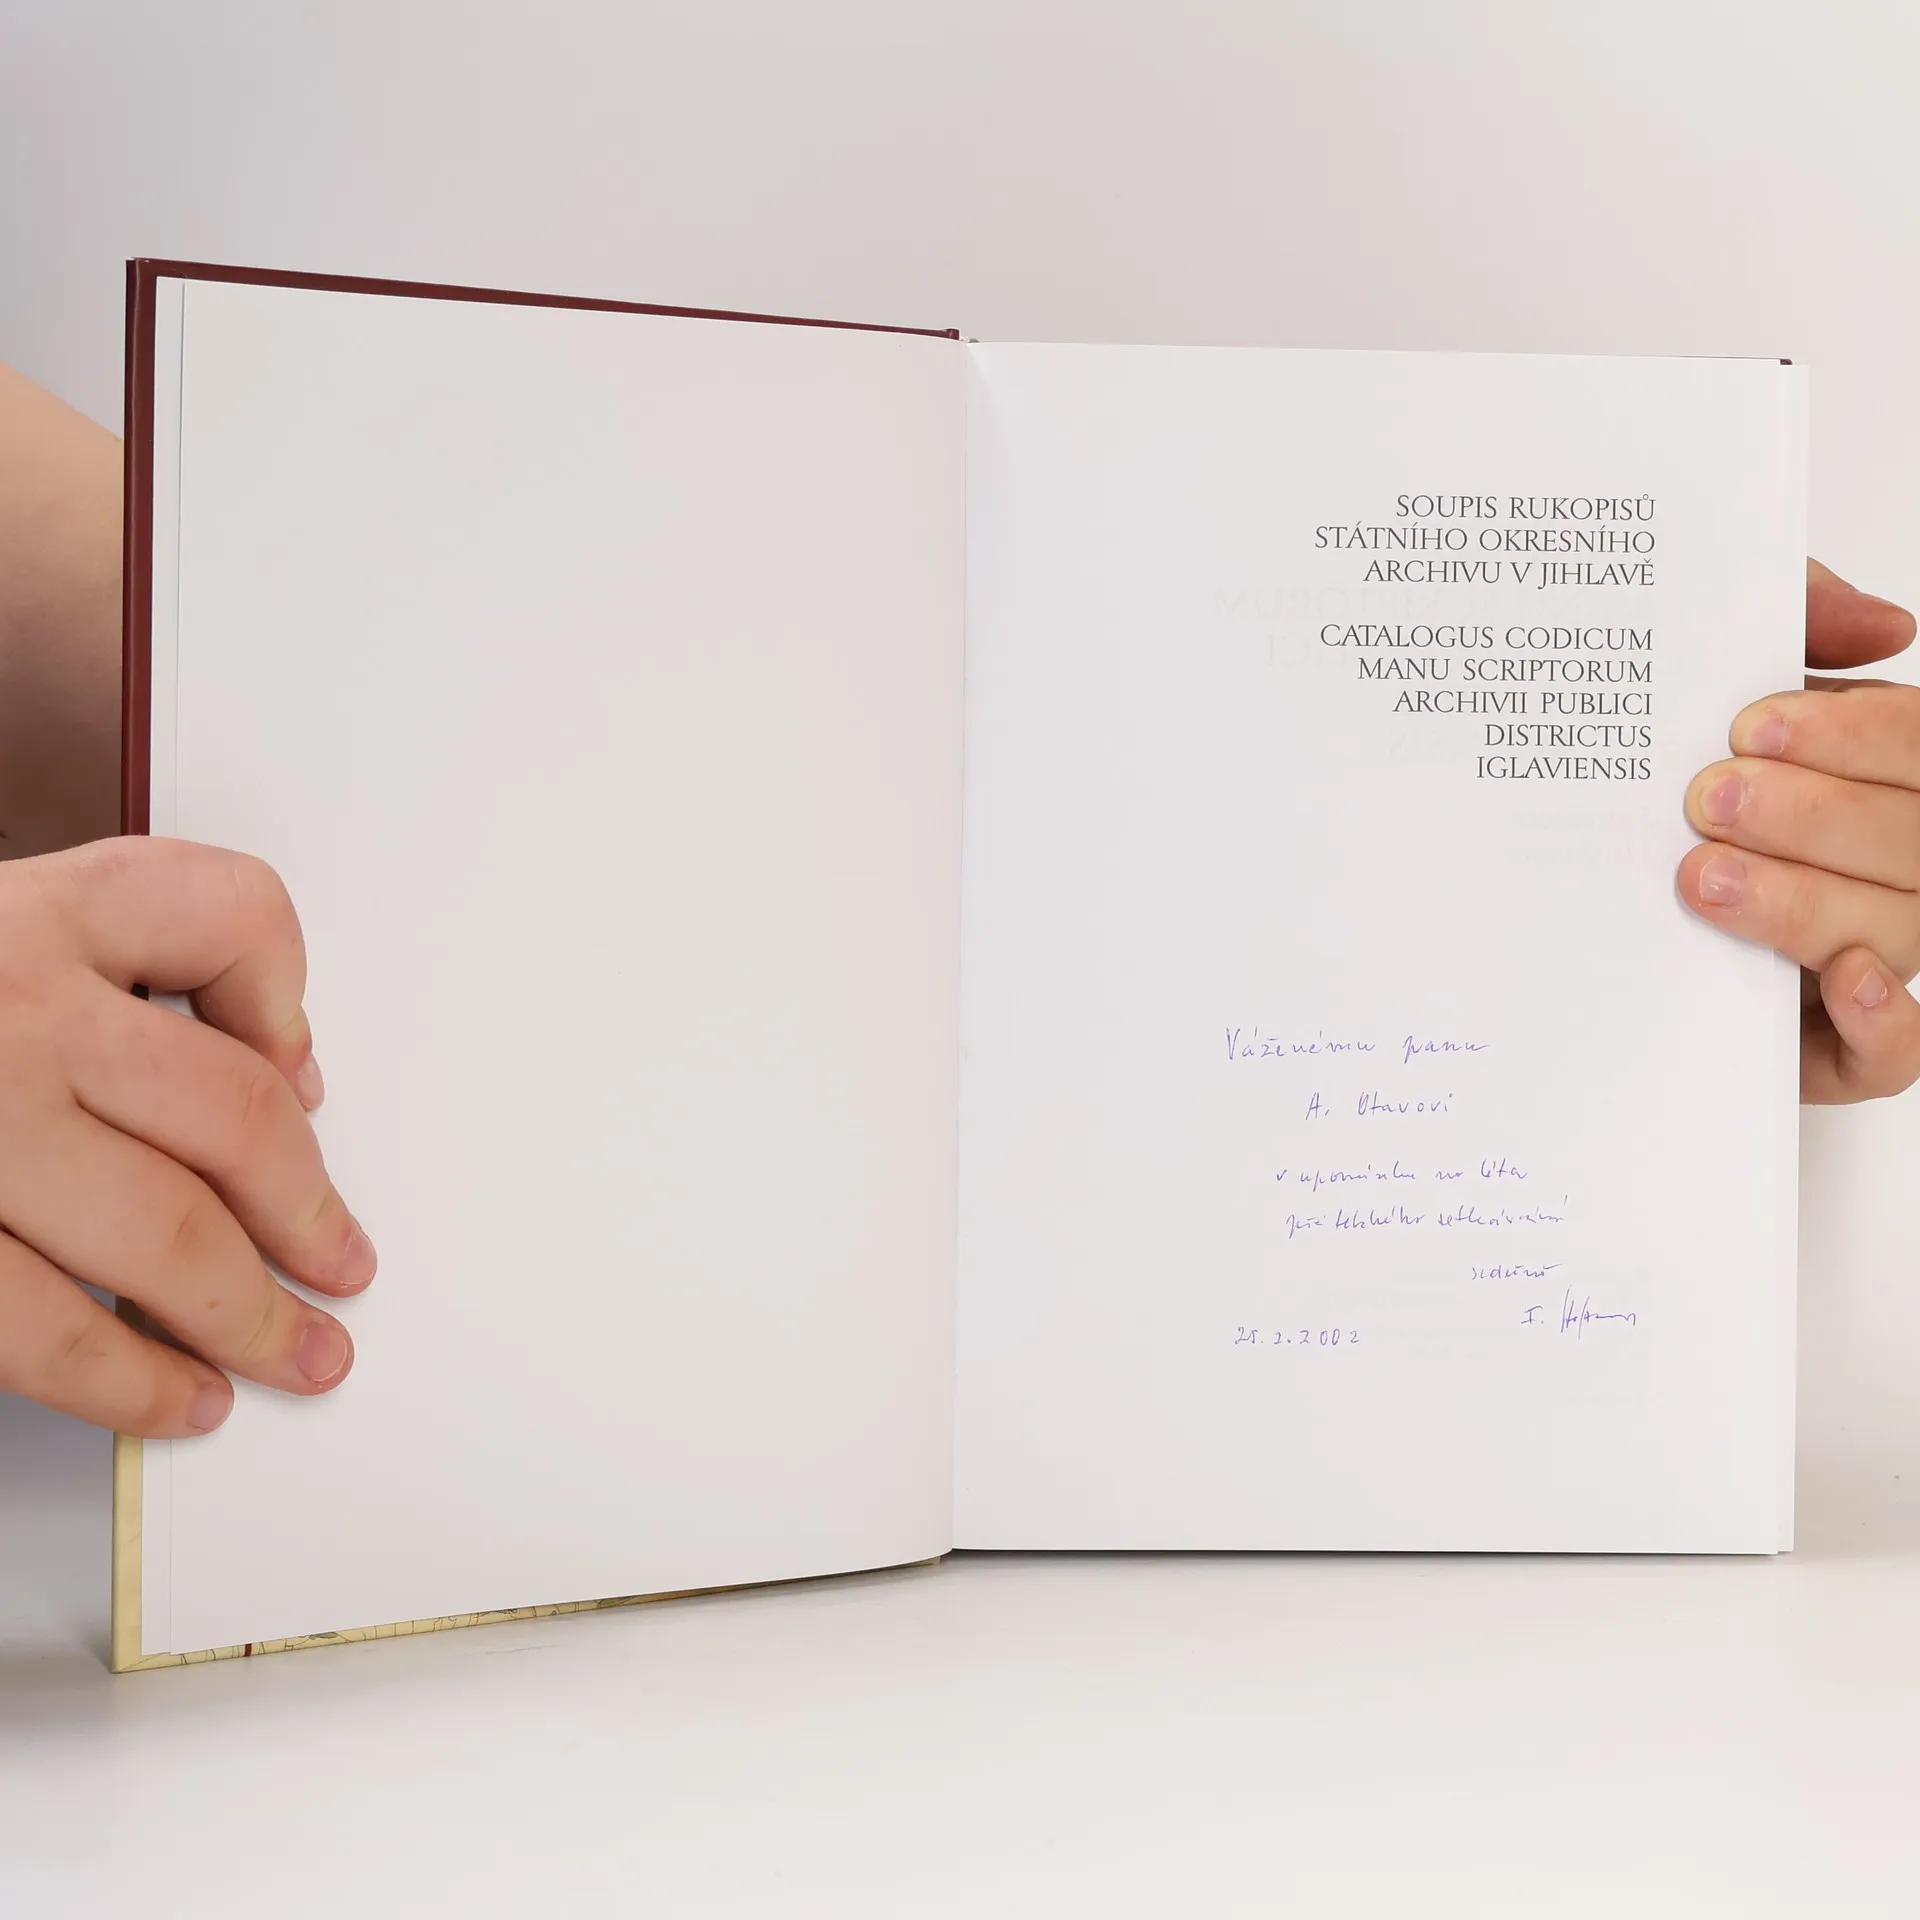 SOUPIS RUKOPISŮ
STÁTNÍHO OKRESNÍHO
ARCHIVU V JIHLAVĚ
CATALOGUS CODICUM
MANU SCRIPTORUM
ARCHIVII PUBLICI
DISTRICTUS
IGLAVIENSIS
Váženému panu
A. Otavovi
v upomínku na léta
přátelského setkávání
srdečně
F.
2002